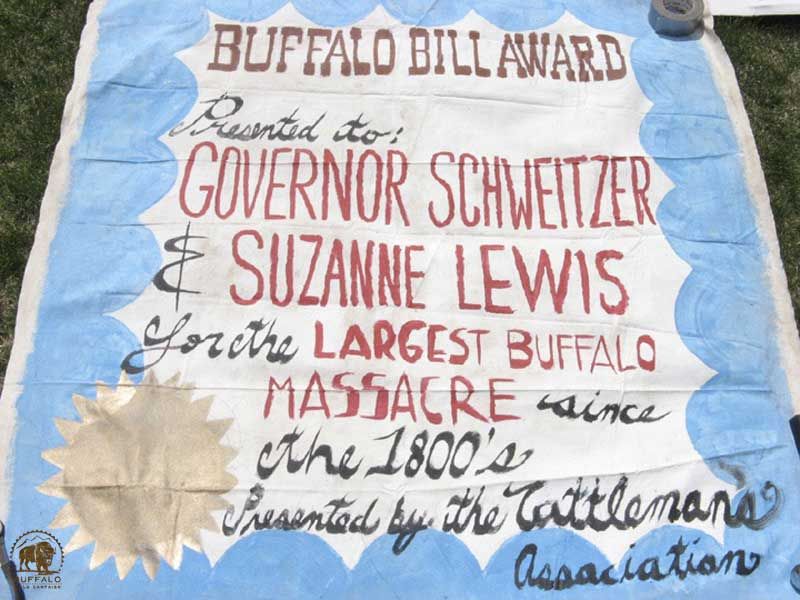 BUFFALO BILL AWARD
Presented to:
GOVERNOR SCHWEITZER
& SUZANNE LEWIS
for the LARGEST BUFFALO
MASSACRE since
the 1800's
Presented by the Cattleman's
Association
BUFFALO
FIELD CAMPAIGN